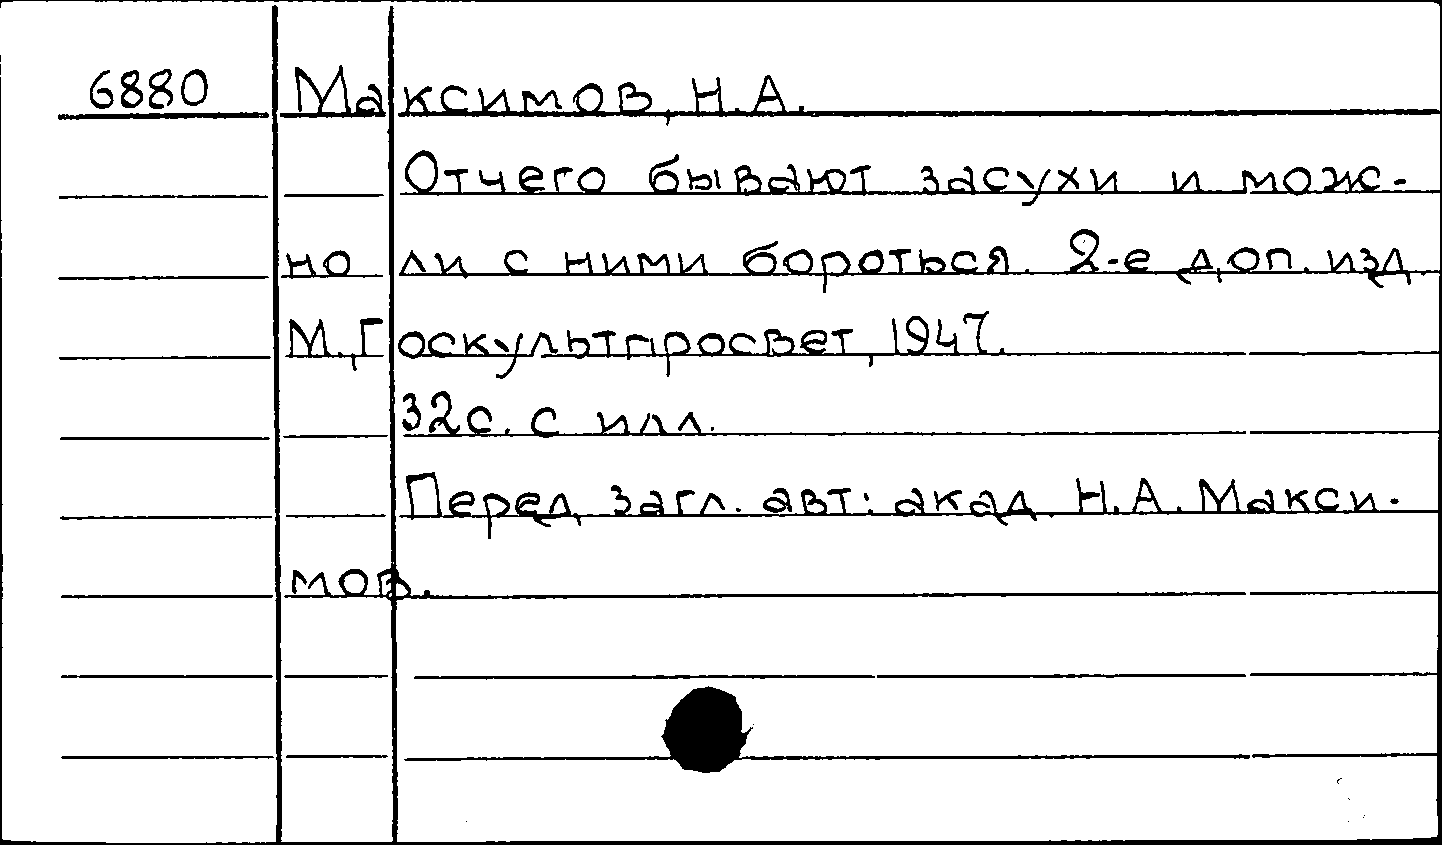 6880 Максимов, Н.А.
Отчего бывают засухи и мож-
но ли с ними бороться. 2-е доп. изд.
М., Госкультпросвет, 1947.
32с. с илл.
Перед загл. авт: акад. Н.А. Макси-
мов.